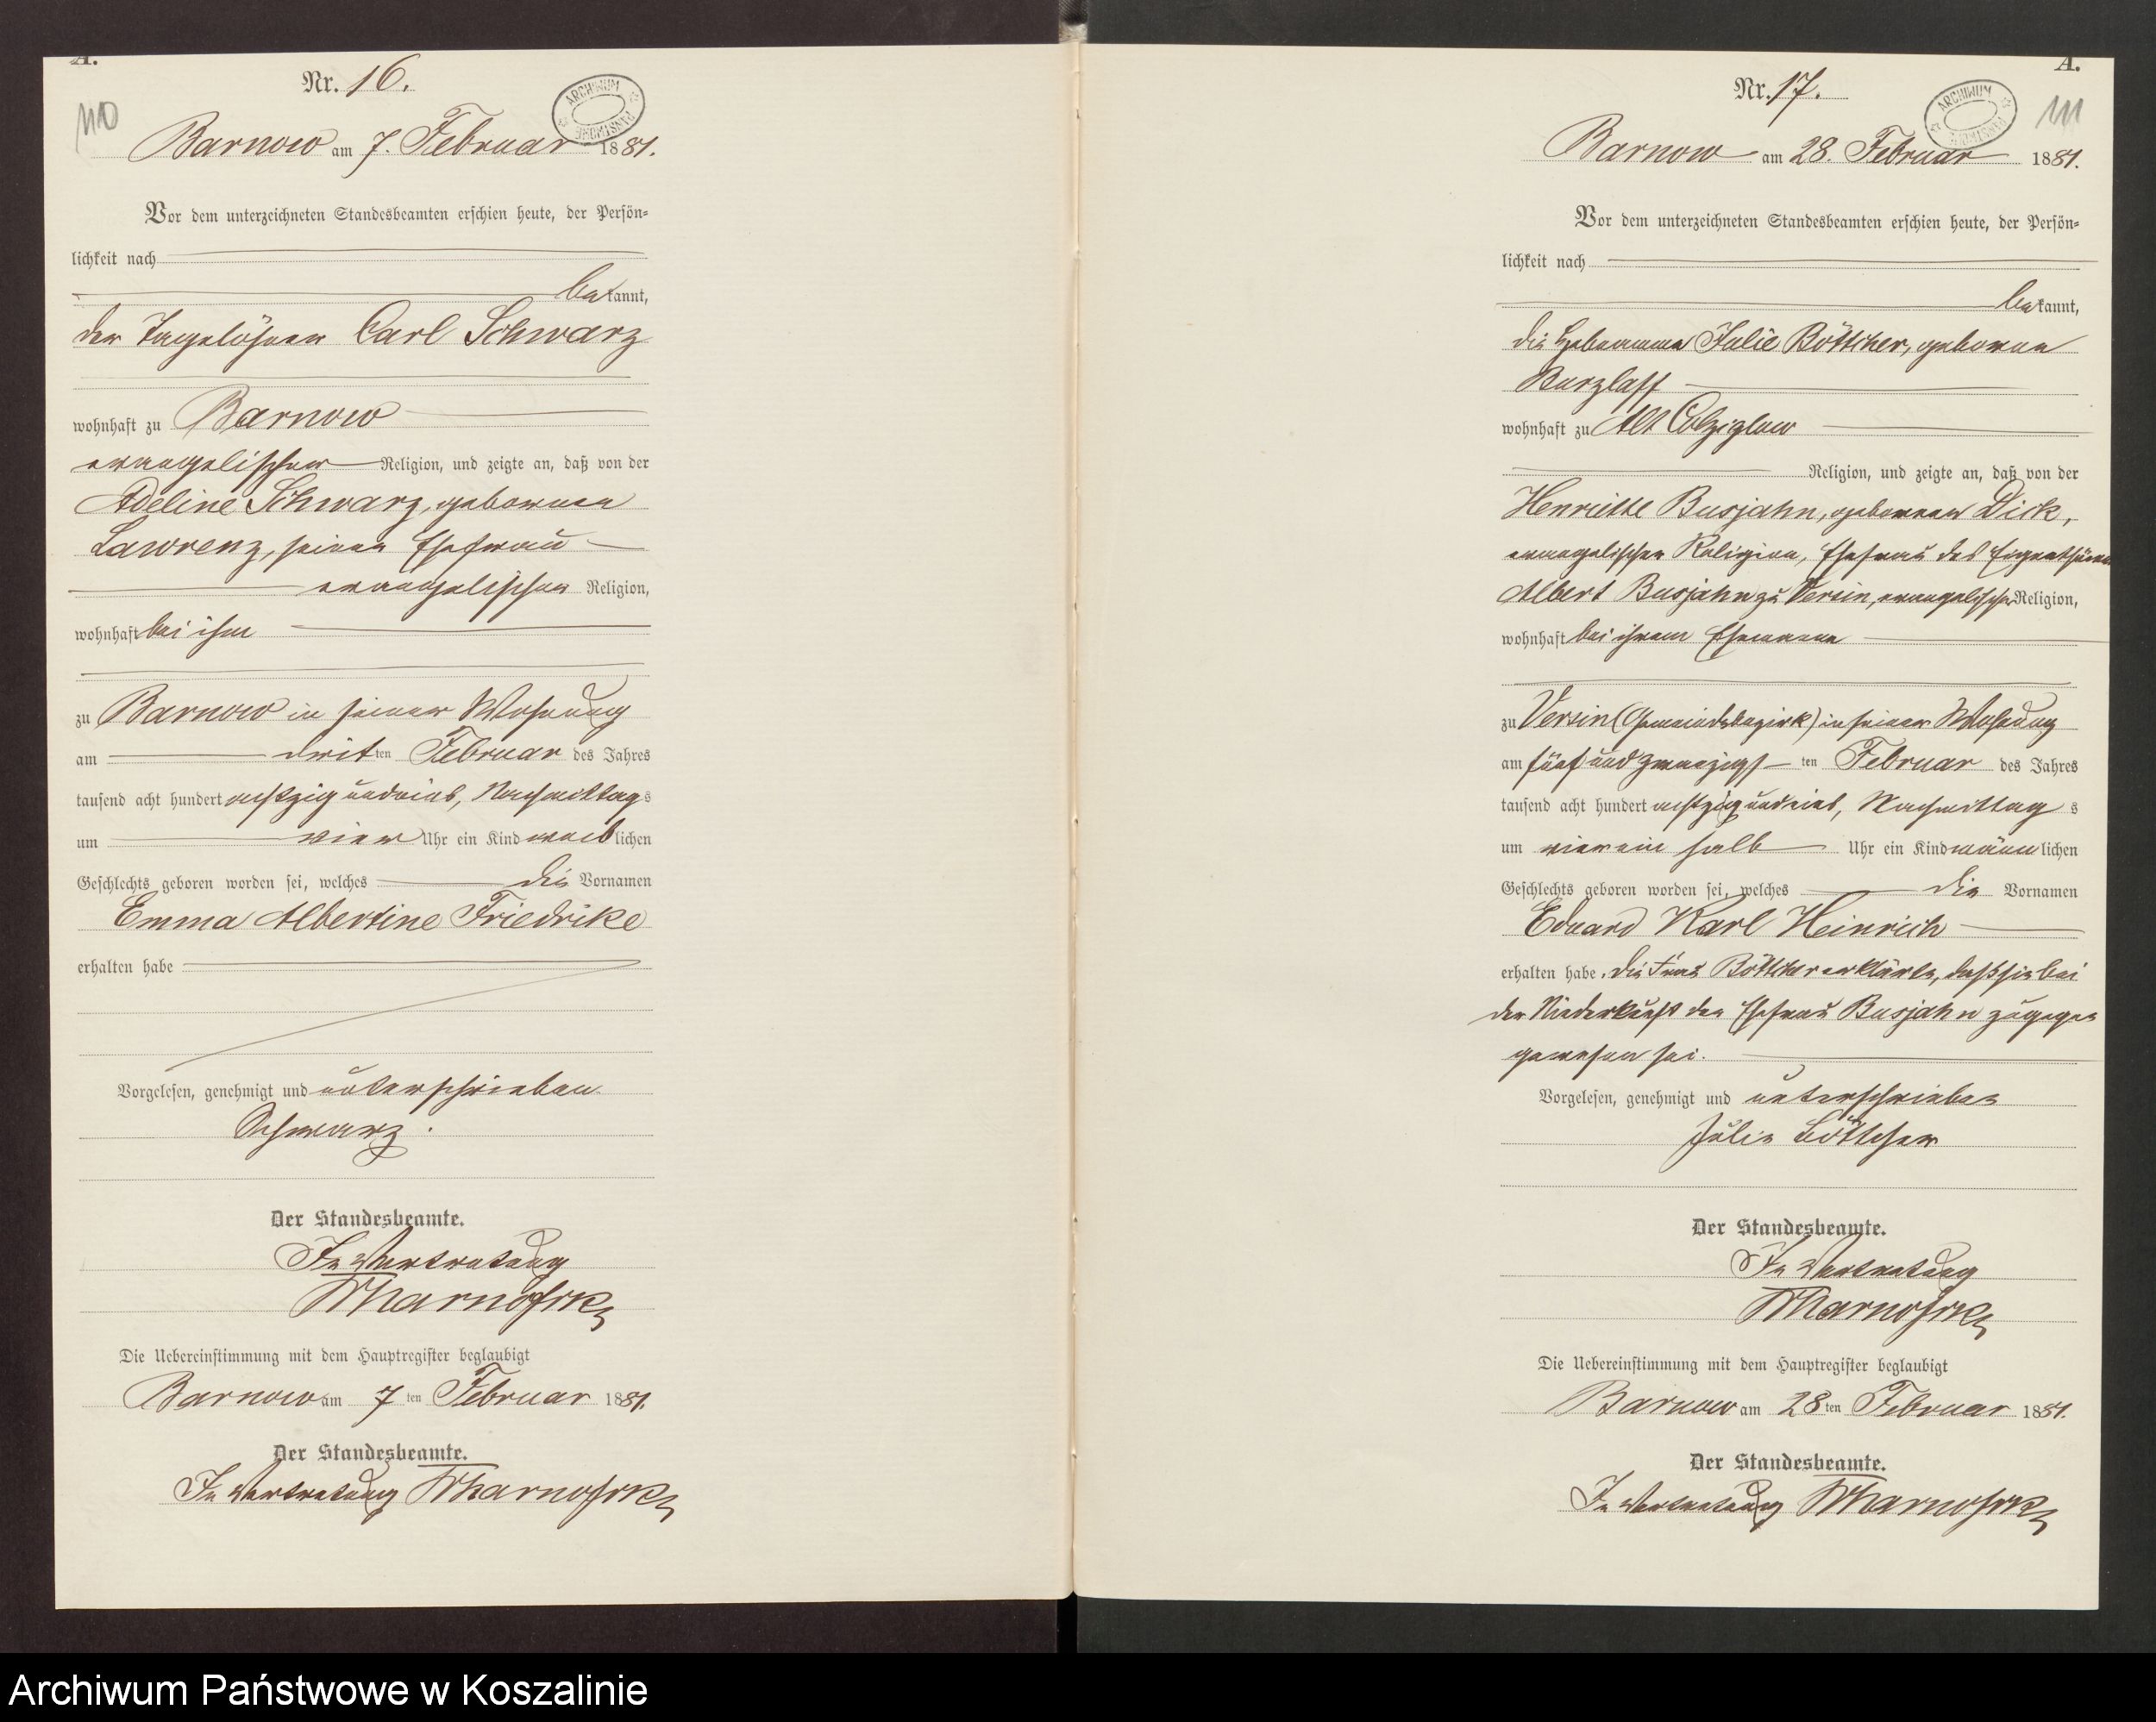 A.
Nr. 16.
110
ARCHIWUM PAŃSTWOWE
Barnow am 7. Februar 1881.
Vor dem unterzeichneten Standesbeamten erschien heute, der Persön-
lichkeit nach
bekannt,
der Tagelöhner Carl Schwarz
wohnhaft zu Barnow
evangelischer Religion, und zeigte an, daß von der
Adeline Schwarz, geborenen
Lawrenz, seiner Ehefrau
evangelischer Religion,
wohnhaft bei ihm
zu Barnow in seiner Wohnung
am dritten Februar des Jahres
tausend acht hundert achtzig und eins, Nachmittags
um vier Uhr ein Kind weiblichen
Geschlechts geboren worden sei, welches die Vornamen
Emma Albertine Friedrike
erhalten habe
Vorgelesen, genehmigt und unterschrieben
Schwarz.
Der Standesbeamte.
In Vertretung
Die Uebereinstimmung mit dem Hauptregister beglaubigt
Barnow am 7 ten Februar 1881.
Der Standesbeamte.
In Vertretung
A.
Nr. 17.
111
ARCHIWUM PAŃSTWOWE
Barnow am 28. Februar 1881.
Vor dem unterzeichneten Standesbeamten erschien heute, der Persön-
lichkeit nach
bekannt,
die Hebamme Julie Böttcher, geborene
Burzlaff
wohnhaft zu Alt Colziglow
Religion, und zeigte an, daß von der
Henriette Busjahn, geborenen Dick,
evangelischer Religion, Ehefrau des Eigenthümers
Albert Busjahn zu Versin, evangelischer Religion,
wohnhaft bei ihrem Ehemanne
zu Versin (Gemeindebezirk) in seiner Wohnung
am fünf und zwanzigsten Februar des Jahres
tausend acht hundert achtzig und eins, Nachmittag s
um vier ein halb Uhr ein Kind männlichen
Geschlechts geboren worden sei, welches die Vornamen
Eduard Karl Heinrich
erhalten habe. Die Frau Böttcher erklärte, daß sie bei
der Niederkunft der Ehefrau Busjahn zugegen
gewesen sei.
Vorgelesen, genehmigt und unterschrieben
Julie Böttcher
Der Standesbeamte.
In Vertretung
Die Uebereinstimmung mit dem Hauptregister beglaubigt
Barnow am 28 ten Februar 1881.
Der Standesbeamte.
In Vertretung
Archiwum Państwowe w Koszalinie